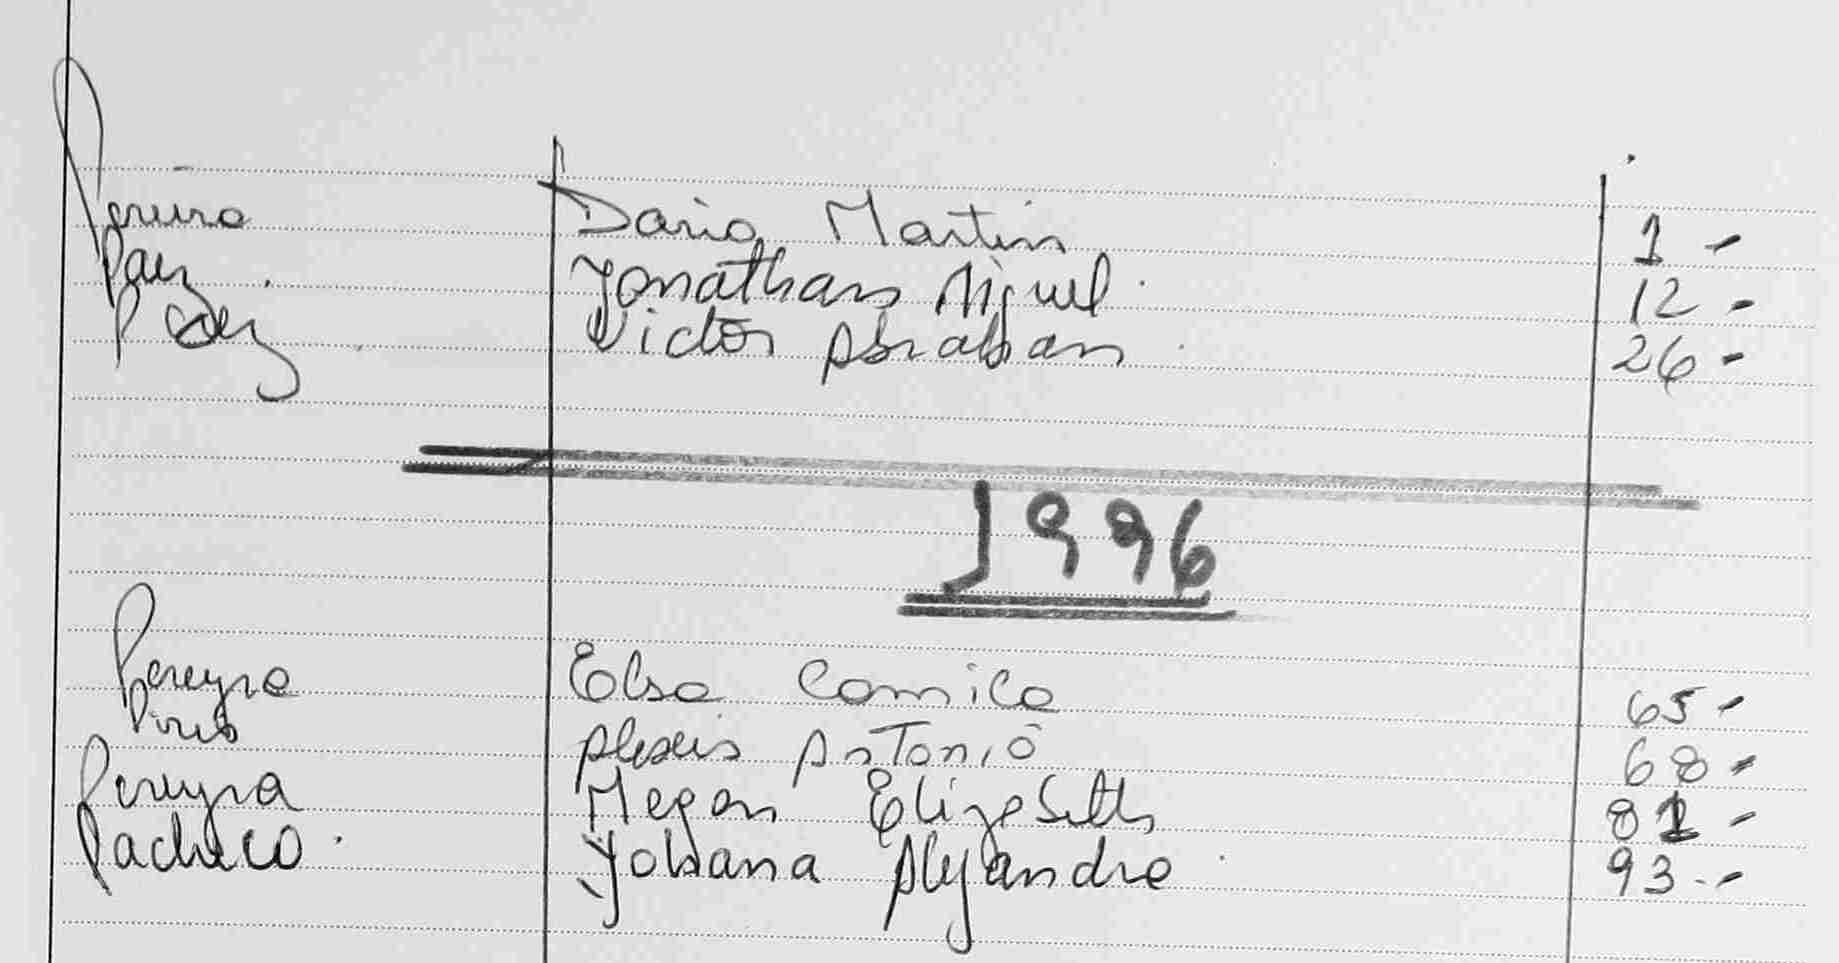 Pereira Dario Martin 1 -
Paez Jonathan Miguel 12 -
Paez Victor Abrahan 26 -
1996
Pereyra Elsa Camila 65 -
Pires Alexis Antonio 68 -
Pereyra Megan Elizabeth 81 -
Pacheco Johana Alejandra 93 -